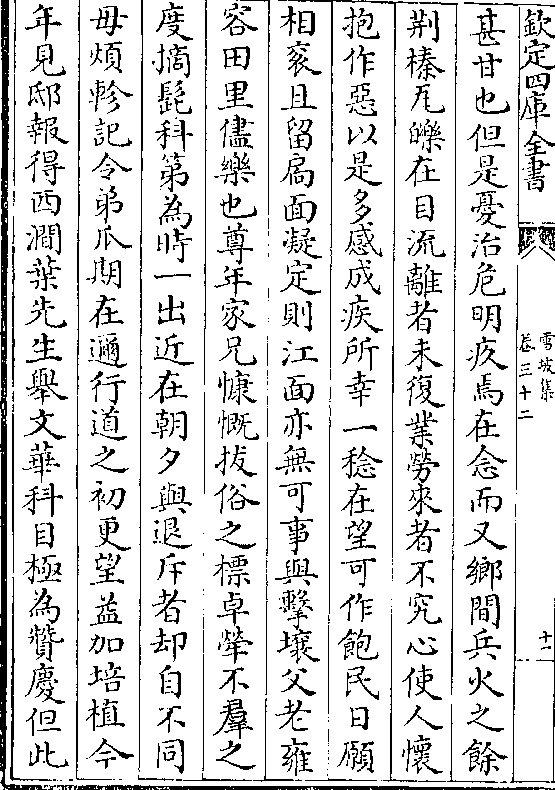 欽定四庫全書
雪坡集
卷三十二
十一
甚甘也但是憂治危明疚焉在念而又鄉間兵火之餘
荆榛瓦礫在目流離者未復業勞來者不究心使人懷
抱作惡以是多感成疾所幸一稔在望可作飽民日願
相衮且留扄面凝定則江面亦無可事與擊壤父老雍
容田里儘樂也尊年家兄慷慨拔俗之標卓犖不羣之
度摘髭科第為時一出近在朝夕與退斥者却自不同
毋煩軫記令弟瓜期在邇行道之初更望益加培植今
年見邸報得西澗葉先生舉文華科目極為贊慶但此